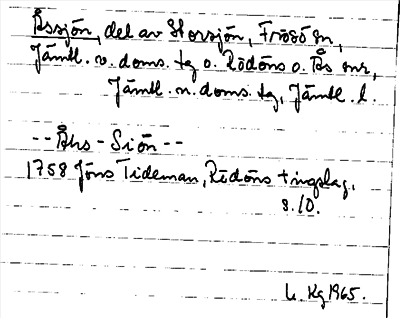 Åssjön, del av Storsjön, Frösö sn,
Jämtl. v. doms. tg o. Rödöns o. Ås snr,
Jämtl. n. doms. tg, Jämtl. l.
-- Åhs - Siön --
1758 Jöns Tideman, Rödöns tingslag.
s. 10.
L. Kg 1965.